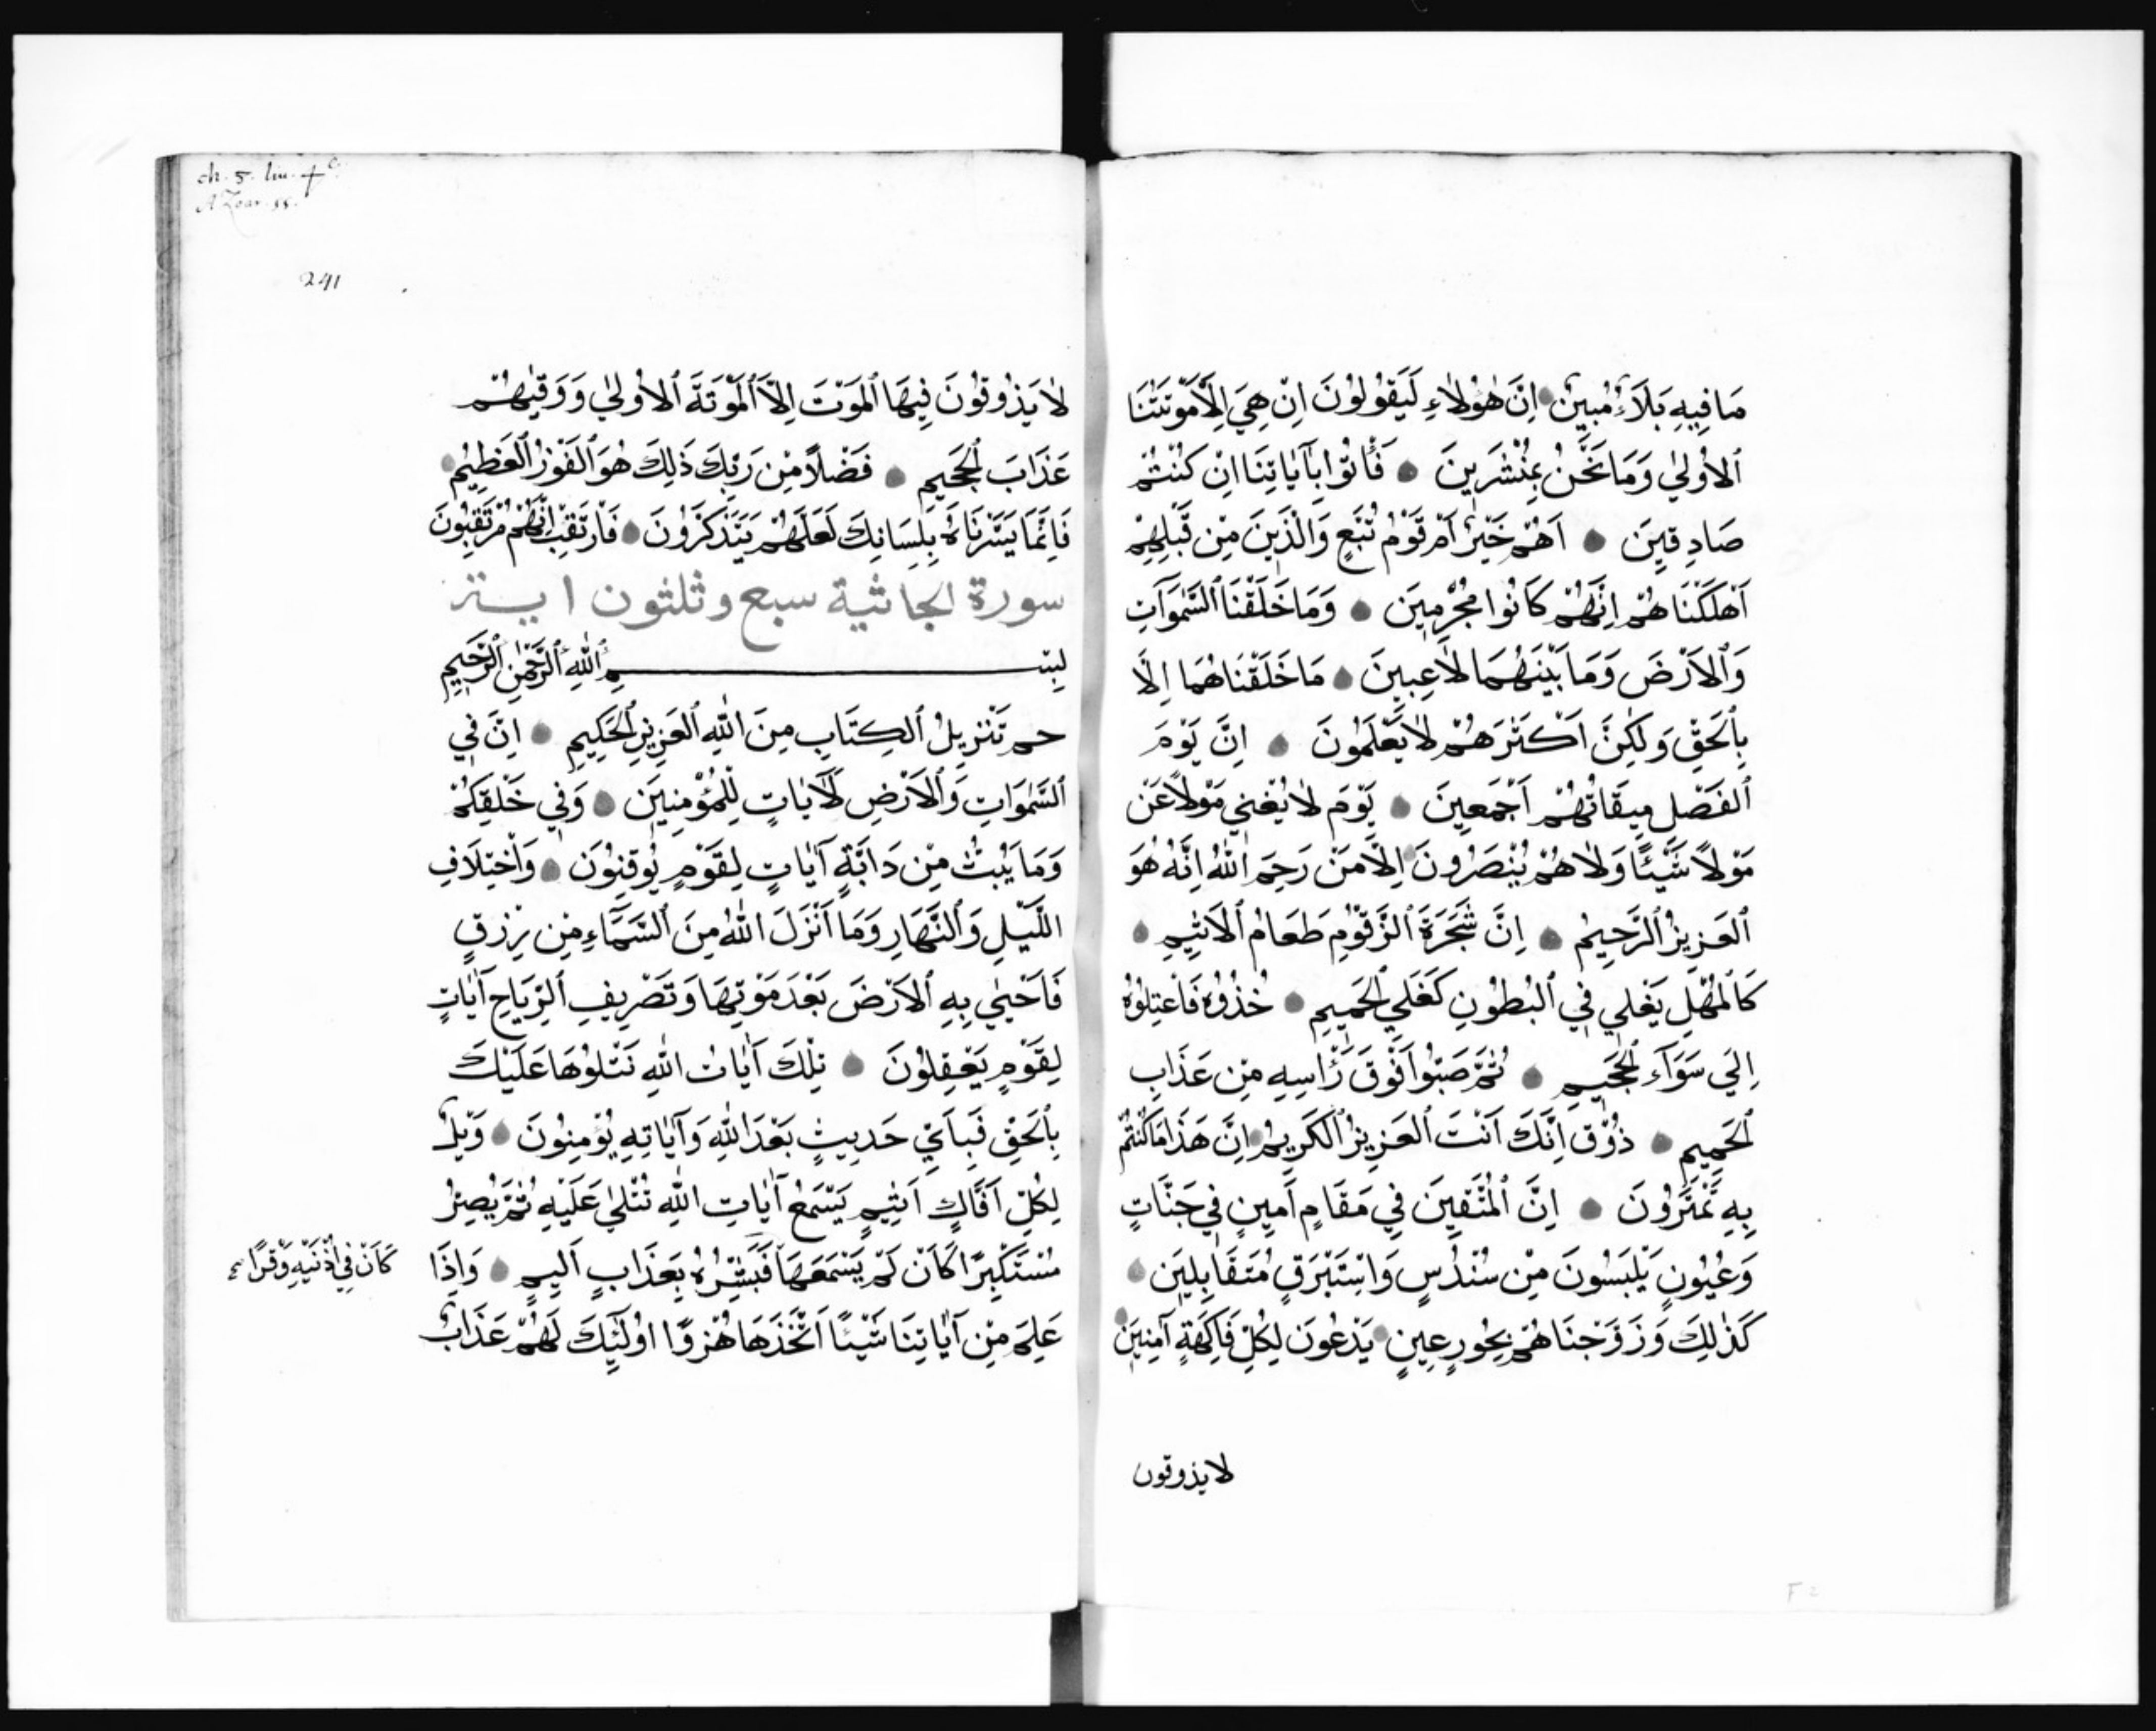 مَا فِيهِ بَلَاءٌ مُبِينٌ اِنَّ هٰؤُلَاءِ لَيَقُولُونَ اِنْ هِيَ اِلَّا مَوْتَتُنَا
ٱلاُولٰي وَمَا نَحْنُ بِمُنْشَرِينَ فَأْتُوا بِآيَاتِنَا اِنْ كُنْتُمْ
صَادِقِينَ اَهُمْ خَيْرٌ اَمْ قَوْمُ تُبَّعٍ وَالَّذِينَ مِنْ قَبْلِهِمْ
اَهْلَكْنَاهُمْ اِنَّهُمْ كَانُوا مُجْرِمِينَ وَمَا خَلَقْنَا ٱلسَّمٰوَاتِ
وَٱلاَرْضَ وَمَا بَيْنَهُمَا لَاعِبِينَ مَا خَلَقْنَاهُمَا اِلَّا
بِٱلحَقِّ وَلٰكِنَّ اَكْثَرَهُمْ لَا يَعْلَمُونَ اِنَّ يَوْمَ
ٱلفَصْلِ مِيقَاتُهُمْ اَجْمَعِينَ يَوْمَ لَا يُغْنِي مَوْلًا عَنْ
مَوْلًا شَيْئًا وَلَا هُمْ يُنْصَرُونَ اِلَّا مَنْ رَحِمَ اللّٰهُ اِنَّهُ هُوَ
ٱلعَزِيزُ ٱلرَّحِيمُ اِنَّ شَجَرَةَ ٱلزَّقُّومِ طَعَامُ ٱلاَثِيمِ
كَٱلمُهْلِ يَغْلِي فِي ٱلبُطُونِ كَغَلْيِ ٱلحَمِيمِ خُذُوهُ فَاعْتِلُوهُ
اِلَي سَوَآءِ ٱلجَحِيمِ ثُمَّ صَبُّوا فَوْقَ رَأْسِهِ مِنْ عَذَابِ
ٱلحَمِيمِ ذُقْ اِنَّكَ اَنْتَ ٱلعَزِيزُ ٱلكَرِيمُ اِنَّ هَذَا مَا كُنْتُمْ
بِهِ تَمْتَرُونَ اِنَّ ٱلمُتَّقِينَ فِي مَقَامٍ اَمِينٍ فِي جَنَّاتٍ
وَعُيُونٍ يَلْبَسُونَ مِنْ سُنْدُسٍ وَاِسْتَبْرَقٍ مُتَقَابِلِينَ
كَذٰلِكَ وَزَوَّجْنَاهُمْ بِحُورٍ عِينٍ يَدْعُونَ لِكُلِّ فَاكِهَةٍ آمِنِينَ
لا يذوقون
F 2
ch. 5. lin. +c.
AZoar. 55.
241
لَا يَذُوقُونَ فِيهَا ٱلمَوْتَ اِلَّا ٱلمَوْتَةَ ٱلاُولٰي وَوَقٰيهُمْ
عَذَابَ ٱلجَحِيمِ فَضْلًا مِنْ رَبِّكَ ذَلِكَ هُوَ ٱلفَوْزُ ٱلعَظِيمُ
فَاِنَّمَا يَسَّرْنَاهُ بِلِسَانِكَ لَعَلَّهُمْ يَتَذَكَّرُونَ فَارْتَقِبْ اِنَّهُمْ مُرْتَقِبُونَ
سورة الجاثية سبع وثلثون ايــة
بِسْمِ ٱللّٰهِ ٱلرَّحْمٰنِ ٱلرَّحِيمِ
حم تَنْزِيلُ ٱلكِتَابِ مِنَ اللّٰهِ ٱلعَزِيزِ ٱلحَكِيمِ اِنَّ فِي
ٱلسَّمٰوَاتِ وَٱلاَرْضِ لَآيَاتٍ لِلْمُؤْمِنِينَ وَفِي خَلْقِكُمْ
وَمَا يَبُثُّ مِنْ دَابَّةٍ آيَاتٍ لِقَوْمٍ يُوقِنُونَ وَاخْتِلَافِ
اللَّيْلِ وَٱلنَّهَارِ وَمَا اَنْزَلَ اللّٰهُ مِنَ ٱلسَّمَآءِ مِنْ رِزْقٍ
فَاَحْيٰي بِهِ ٱلاَرْضَ بَعْدَ مَوْتِهَا وَتَصْرِيفِ ٱلرِّيَاحِ آيَاتٍ
لِقَوْمٍ يَعْقِلُونَ تِلْكَ آيَاتُ اللّٰهِ نَتْلُوهَا عَلَيْكَ
بِٱلحَقِّ فَبِاَيِّ حَدِيثٍ بَعْدَ اللّٰهِ وَآيَاتِهِ يُؤْمِنُونَ وَيْلٌ
لِكُلِّ اَفَّاكٍ اَثِيمٍ يَسْمَعُ آيَاتِ اللّٰهِ تُتْلٰي عَلَيْهِ ثُمَّ يُصِرُّ
مُسْتَكْبِرًا كَاَنْ لَمْ يَسْمَعْهَا فَبَشِّرْهُ بِعَذَابٍ اَلِيمٍ وَاِذَا
كَاَنَّ فِي اُذُنَيْهِ وَقْرًا
عَلِمَ مِنْ آيَاتِنَا شَيْئًا اَتَّخَذَهَا هُزُوًا اُولَئِكَ لَهُمْ عَذَابٌ